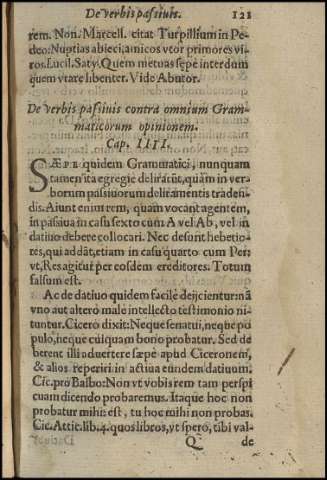 De verbis passiuis. 121
rem. Non. Marcell. citat Turpillium in Pe-
deo: Nuptias abieci, amicos vtor primores vi-
ros. Lucil. Saty. Quem metuas sępe interdum
quem vtare libenter. Vide Abutor.
De verbis passiuis contra omnium Gram-
maticorum opinionem.
Cap. IIII.
SÆPE quidem Grammatici, nunquam
tamen ita egregie delirarũt, quàm in ver-
borum passiuorum deliramentis tradẽn-
dis. Aiunt enim rem, quam vocant agentem,
in passiua in casu sexto cum A vel Ab, vel in
datiuo debere collocari. Nec desunt hebetio-
res, qui addãt, etiam in casu quarto cum Per:
vt, Res agitur per eosdem creditores. Totum
falsum est.
Ac de datiuo quidem facilè deijcientur: nã
vno aut altero malè intellecto testimonio ni-
tuntur. Cicero dixit: Neque senatui, neque po
pulo, neque cuiquam bono probatur. Sed de
berent illi aduertere sæpè apud Ciceronem,
& alios reperiri in actiua eundem datiuum.
Cic. pro Balbo: Non vt vobis rem tam perspi
cuam dicendo probaremus. Itaque hoc non
probatur mihi: est, tu hoc mihi non probas.
Cic. Attic. lib. 4. quos libros, vt spero, tibi val-
Q de